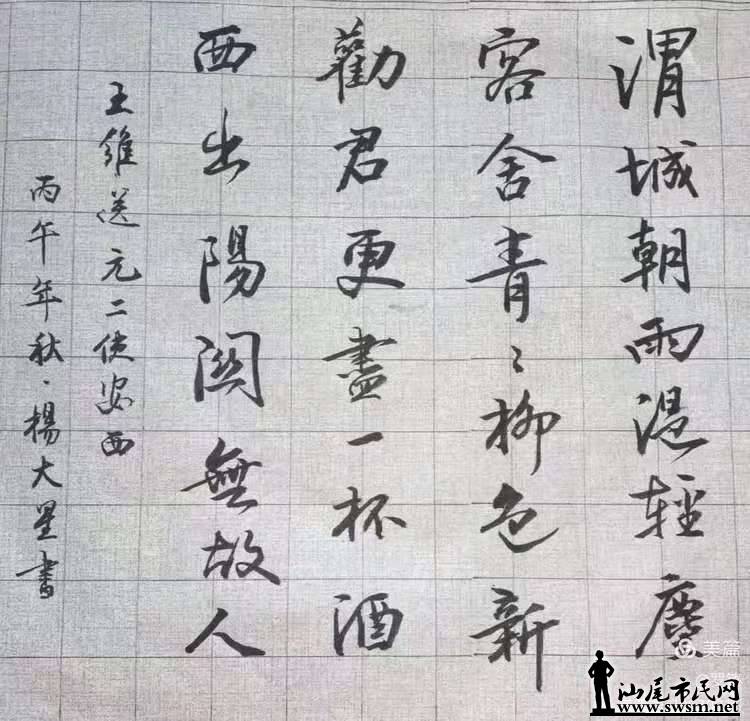 渭城朝雨浥輕塵
客舍青〻柳色新
勸君更盡一杯酒
西出陽關無故人
王維送元二使安西
丙午年秋·楊大星書
美篇
汕尾市民网
www.swsm.net